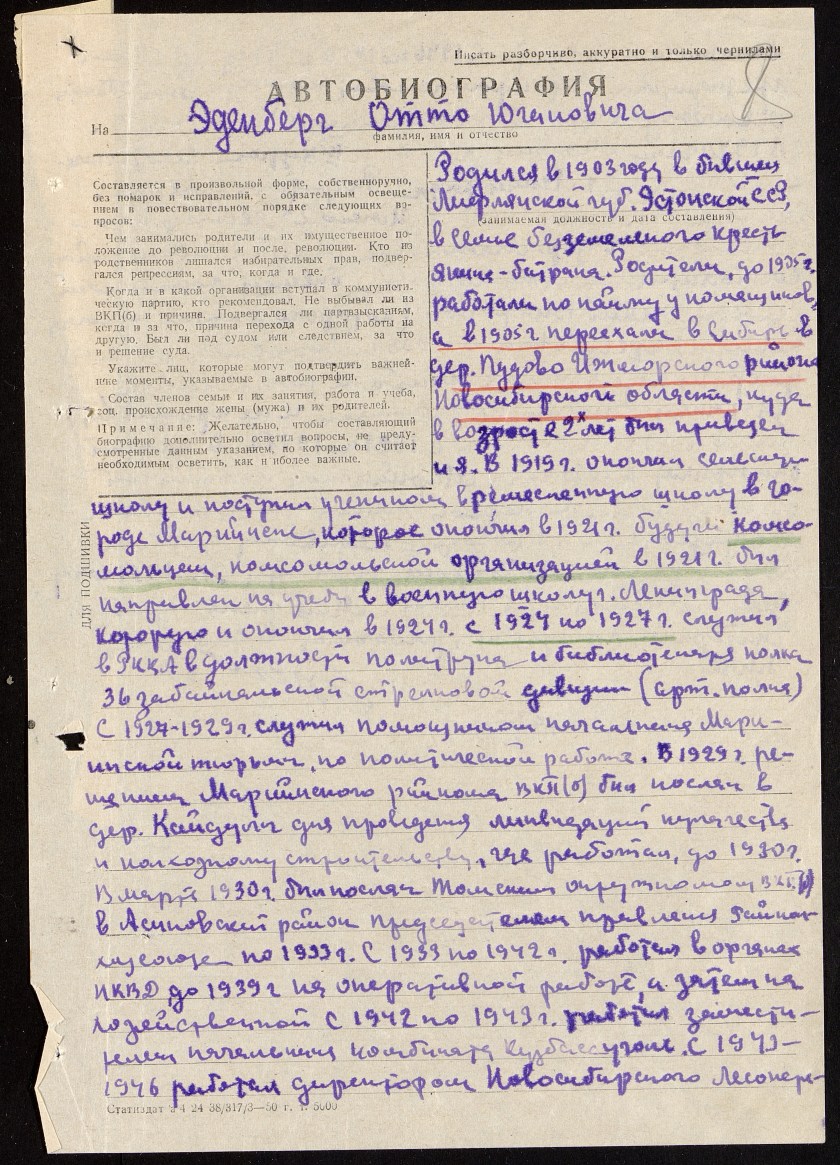 Писать разборчиво, аккуратно и только чернилами
8
АВТОБИОГРАФИЯ
На Эденберг Отто Югановича
фамилия, имя и отчество
Составляется в произвольной форме, собственноручно,
без помарок и исправлений, с обязательным освеще-
нием в повествовательном порядке следующих во-
просов:
Чем занимались родители и их имущественное по-
ложение до революции и после, революции. Кто из
родственников лишался избирательных прав, подвер-
гался репрессиям, за что, когда и где.
Когда и в какой организации вступал в коммунисти-
ческую партию, кто рекомендовал. Не выбывал ли из
ВКП(б) и причина. Подвергался ли партвзысканиям,
когда и за что, причина перехода с одной работы на
другую. Был ли под судом или следствием, за что
и решение суда.
Укажите лиц, которые могут подтвердить важней-
шие моменты, указываемые в автобиографии.
Состав членов семьи и их занятия, работа и учеба,
соц. происхождение жены (мужа) и их родителей.
Примечание: Желательно, чтобы составляющий
биографию дополнительно осветил вопросы, не преду-
смотренные данным указанием, но которые он считает
необходимым осветить, как иболее важные.
ДЛЯ ПОДШИВКИ
Родился в 1903 году в бывшей
Лифлянской губ. Эстонской ССР,
(занимаемая должность и дата составления)
в семье безземельного кресть
янина-батрака. Родители, до 1905 г.
работали по найму у помещиков,
а в 1905 г переехали в Сибирь в
дер. Пудово Ижморского района
Новосибирской области, куда
в возрасте 2х лет был приведен
и я. В 1919 г. окончил сельскую
школу и поступил учеником в ремесленную школу в го-
роде Мариинске, которое окончил в 1921 г. будучи комсо-
мольцем, комсомольской организацией в 1921 г. был
направлен на учебу в военную школу г. Ленинграда,
которую и окончил в 1924 г. с 1924 по 1927 г. служил
в РККА в должности политрука и библиотекаря полка
36 забайкальской стрелковой дивизии (арт. полка)
С 1927-1929 г. служил помощником начальника Мари-
инской тюрьмы, по политической работе. В 1929 г. ре-
шением Мариинского райкома ВКП(б) был послан в
дер. для проведения ликвидации кулачества
и колхозному строительству, где работал, до 1930 г.
В марте 1930 г. был послан Томским окружкомом ВКП(б)
в Асиновский район председателем правления
по 1933 г. С 1933 по 1942 г. работал в органах
НКВД до 1939 г на оперативной работе, а затем на
хозяйственной С 1942 по 1943 г. работал замести-
телем начальника комбината Кузбассуголь. С 1943-
1946 работал директором Новосибирского Лесопере-
Статиздат з 4 24 38/317/3—50 г. т. 5000